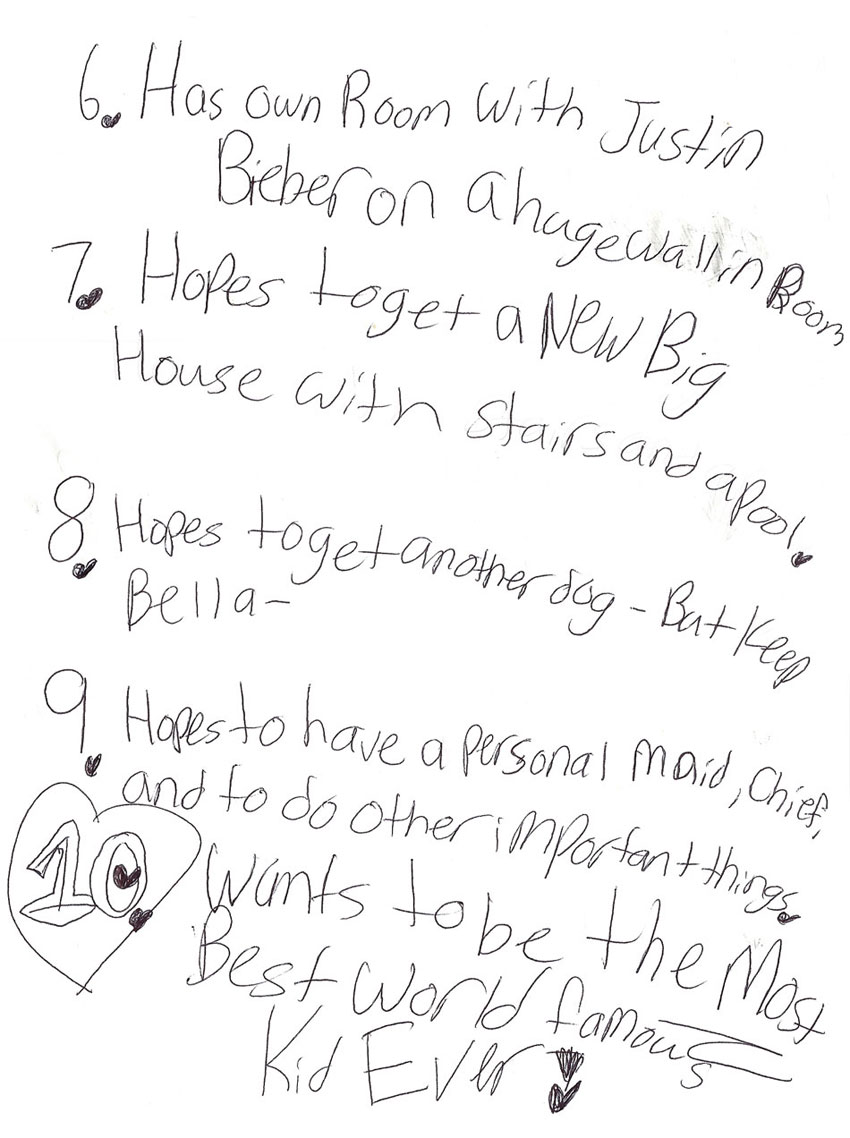 6. Has own Room With Justin
Bieber on a huge wall in Room
7. Hopes to get a New Big
House with stairs and a pool.
8. Hopes to get another dog - But Keep
Bella-
9. Hopes to have a personal maid, Chief,
and to do other important things.
10. Wants to be the Most
Best World famous
Kid Ever!